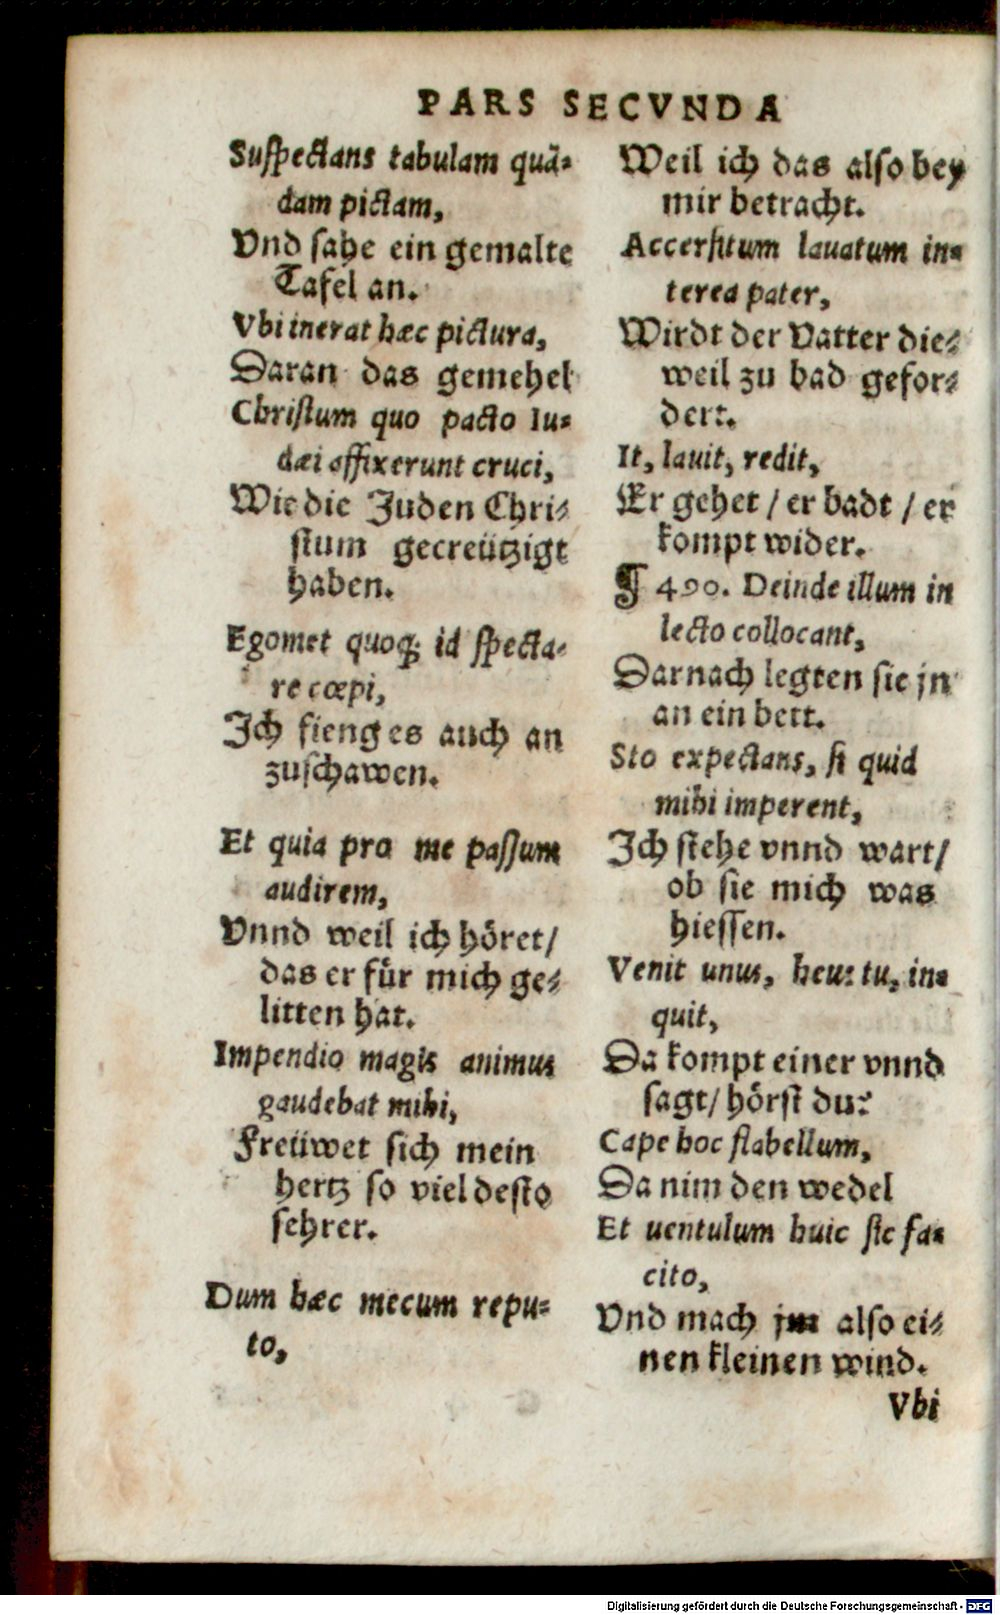 PARS SECVNDA
Suſpectans tabulam quã-
dam pictam,
Vnd ſahe ein gemalte
Tafel an.
Vbi inerat hæc pictura,
Daran das gemehel
Chriſtum quo pacto Iu-
dæi affixerunt cruci,
Wie die Juden Chri-
ſtum gecreützigt
haben.
Egomet quoq; id ſpecta-
re cœpi,
Ich fieng es auch an
zuſchawen.
Et quia pro me paſſum
audirem,
Vnnd weil ich höret/
das er für mich ge-
litten hat.
Impendio magis animus
gaudebat mihi,
Freüwet ſich mein
hertz ſo viel deſto
ſehrer.
Dum hæc mecum repu-
to,
Weil ich das alſo bey
mir betracht.
Accerſitum lauatum in-
terea pater,
Wirdt der Vatter die-
weil zu bad gefor-
dert.
It, lauit, redit,
Er gehet / er badt / er
kompt wider.
¶ 490. Deinde illum in
lecto collocant,
Darnach legten ſie jn
an ein bett.
Sto expectans, ſi quid
mihi imperent,
Ich ſtehe vnnd wart/
ob ſie mich was
hieſſen.
Venit unus, heus tu, in-
quit,
Da kompt einer vnnd
ſagt/ hörſt du?
Cape hoc flabellum,
Da nim den wedel
Et uentulum huic ſic fa-
cito,
Vnd mach jm alſo ei-
nen kleinen wind.
Vbi
Digitalisierung gefördert durch die Deutsche Forschungsgemeinschaft - DFG